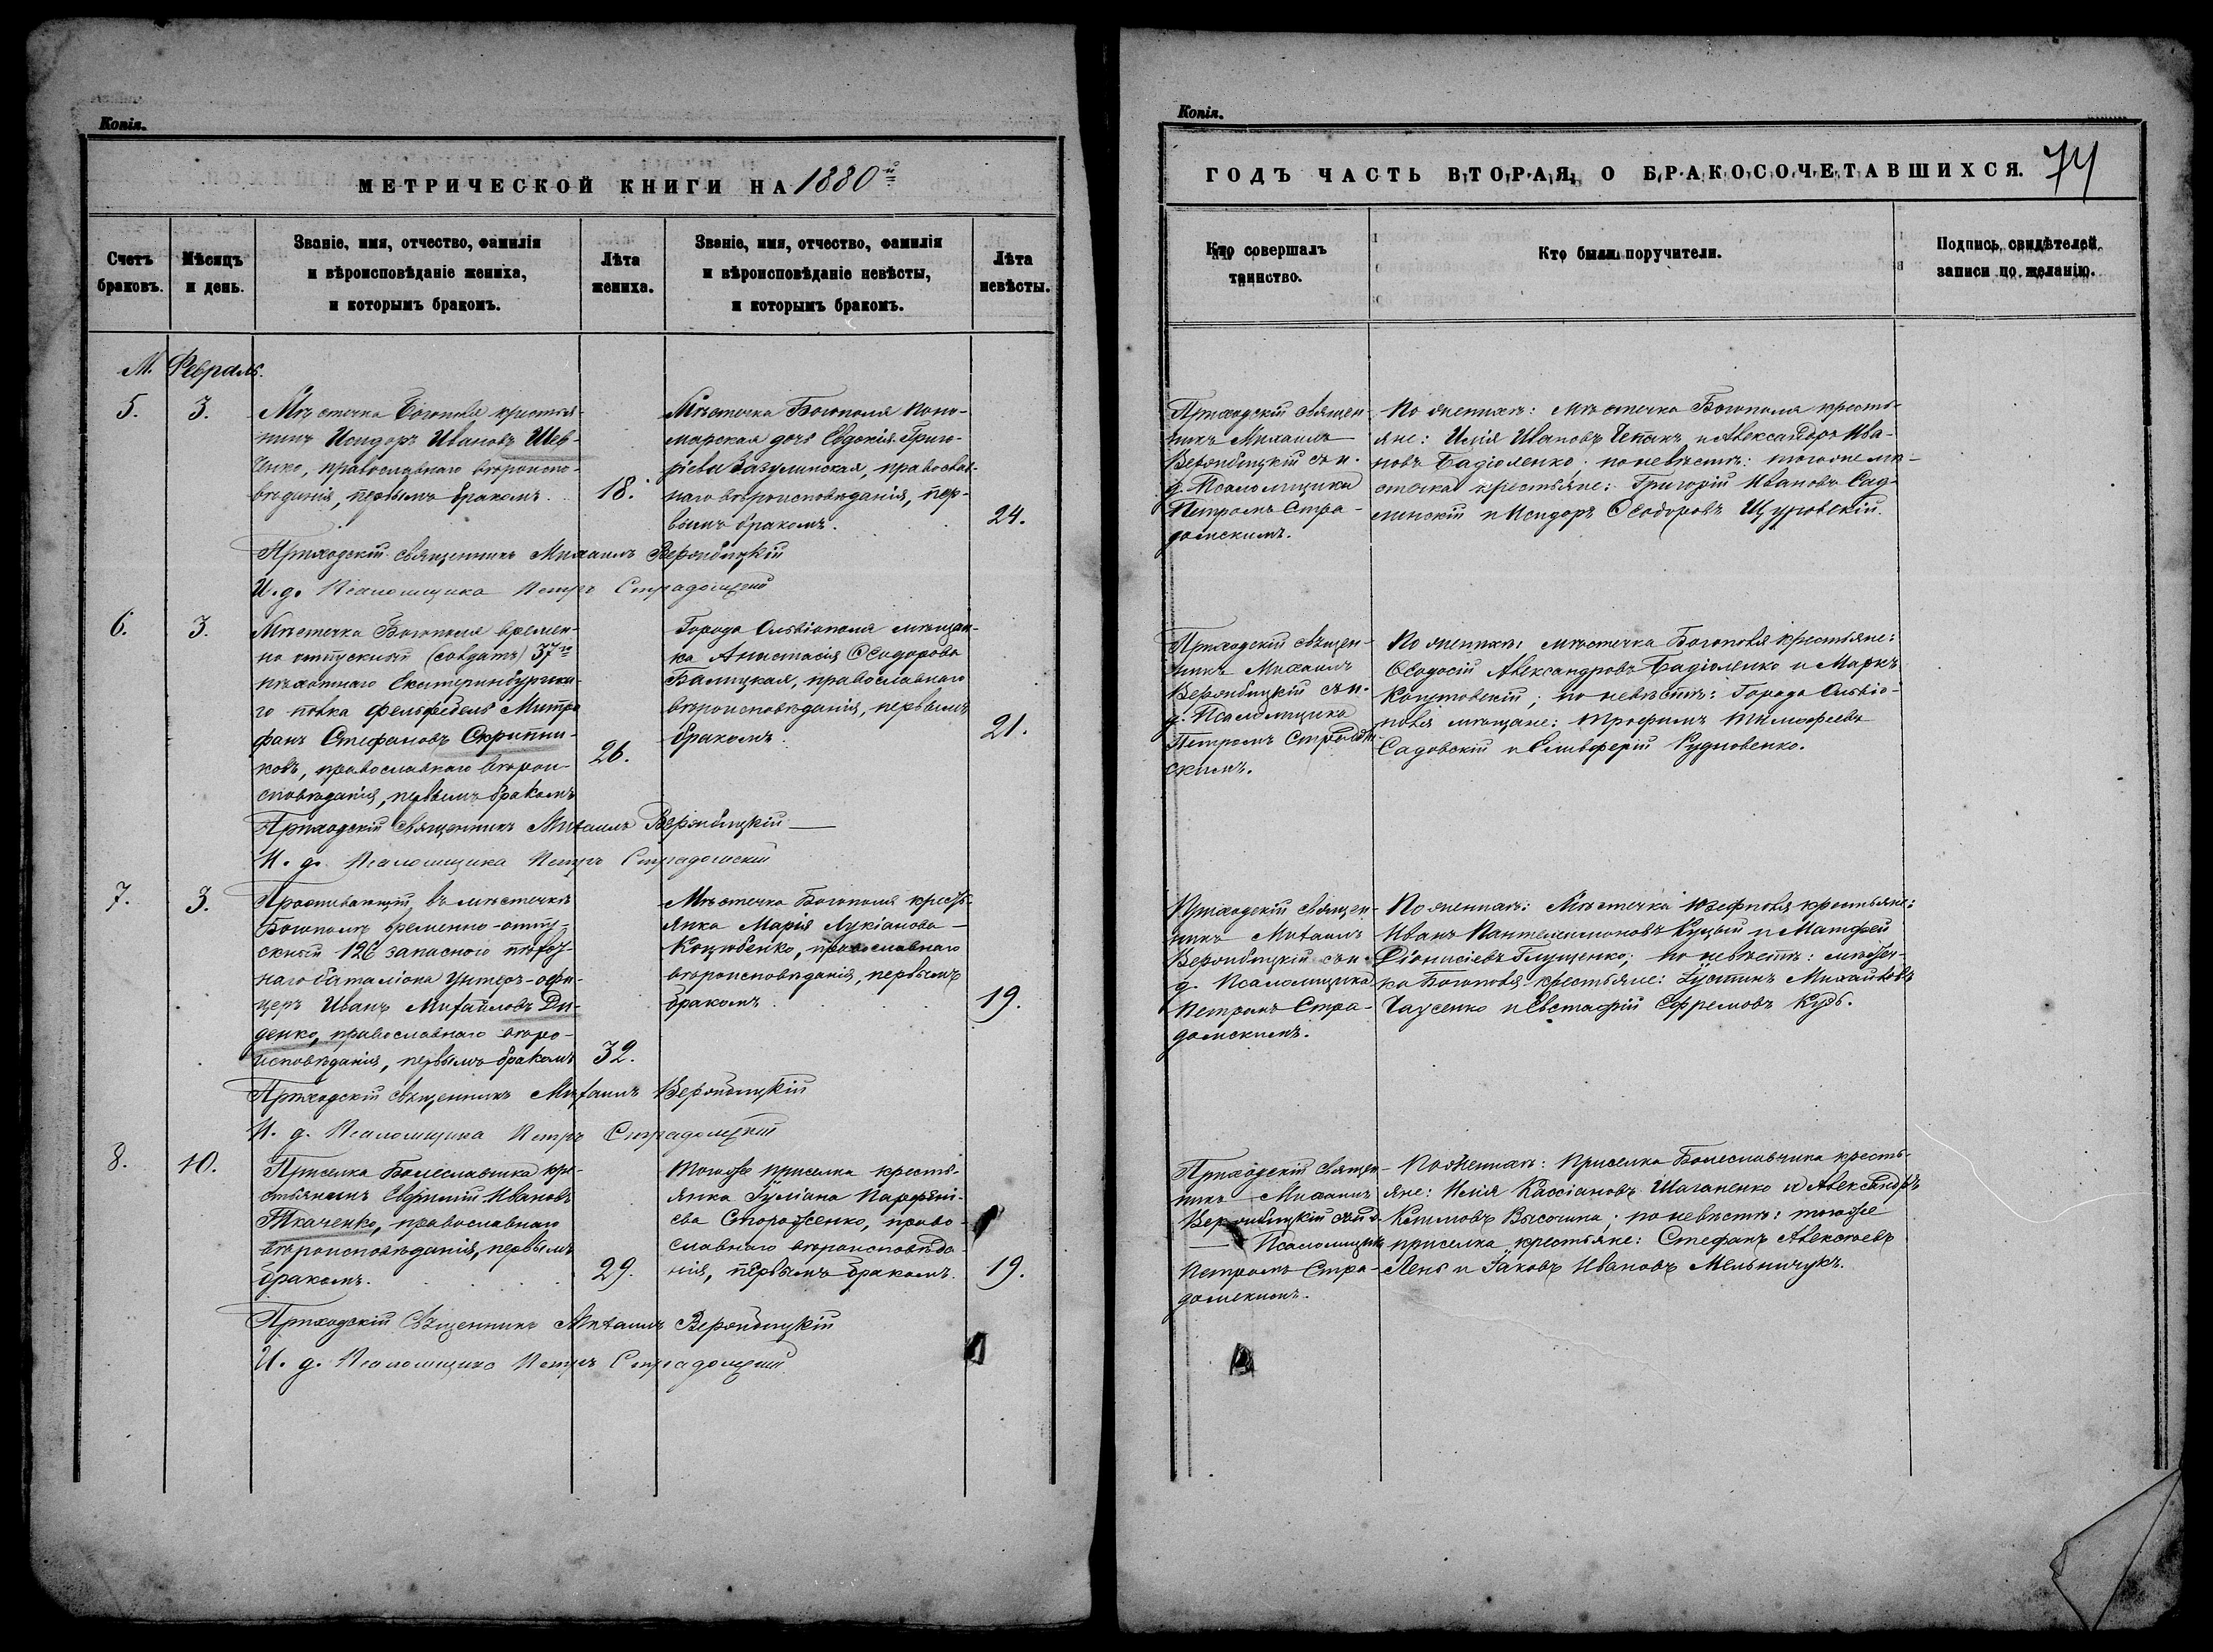 Копія.
МЕТРИЧЕСКОЙ КНИГИ НА 1880й
Счетъ браковъ.
Мѣсяцъ и день.
Званіе, имя, отчество, фамилія
и вѣроисповѣданіе жениха,
и которымъ бракомъ.
Лѣта жениха.
Званіе, имя, отчество, фамилія
и вѣроисповѣданіе невѣсты,
и которымъ бракомъ.
Лѣта невѣсты.
М. Февраль.
5.
3.
Мѣстечка Богополя крестья-
нинъ Исидоръ Ивановъ Шев-
ченко, православнаго вѣроиспо-
вѣданія, первымъ бракомъ.
18.
Мѣстечка Богополя поно-
марская дочь Евдокія Григо-
ріева Загулинская, православ-
наго вѣроисповѣданія, пер-
вымъ бракомъ.
24.
Приходскій священникъ Михаилъ Вержбицкій
И. д. Псаломщика Петръ Страдомскій
6.
3.
Мѣстечка Богополя времен-
но отпускный (солдатъ) 37го
пѣхотнаго Екатеринбургска-
го полка фельдфебель Митро
фанъ Стефановъ Скрипни-
ковъ, православнаго вѣрои-
сповѣданія, первымъ бракомъ
26.
Города Ольвіополя мѣщан-
ка Анастасія Ѳеодорова
Балицкая, православнаго
вѣроисповѣданія, первымъ
бракомъ.
21.
Приходскій священникъ Михаилъ Вержбицкій
И. д. Псаломщика Петръ Страдомскій
7.
3.
Проживающій въ мѣстечкѣ
Богополѣ временно-отпу-
скный 126 запаснаго пѣхот-
наго баталіона Унтеръ-офи-
церъ Иванъ Михайловъ Ди-
денко, православнаго вѣро-
исповѣданія, первымъ бракомъ
32.
Мѣстечка Богополя кресть-
янка Марія Лукіанова
Коцюбенко, православнаго
вѣроисповѣданія, первымъ
бракомъ
19.
Приходскій священникъ Михаилъ Вержбицкій
И. д. Псаломщика Петръ Страдомскій
8.
10.
Приселка Болеславчика кре-
стьянинъ Евфимій Ивановъ
Ткаченко, православнаго
вѣроисповѣданія, первымъ
бракомъ.
29.
Тогоже приселка кресть-
янка Іуліана Парфені-
ева Стороженко, право-
славнаго вѣроисповѣда-
нія, первымъ бракомъ.
19.
Приходскій Священникъ Михаилъ Вержбицкій
И. д. Псаломщика Петръ Страдомскій
Копія.
ГОДЪ ЧАСТЬ ВТОРАЯ, О БРАКОСОЧЕТАВШИХСЯ.
74
Кто совершалъ
таинство.
Кто были поручители.
Подпись свидѣтелей
записи по желанію.
Приходскій священ-
никъ Михаилъ
Вержбицкій съ и.
д. Псаломщика
Петромъ Стра-
домскимъ.
По женихѣ: мѣстечка Богополя кресть-
яне: Илія Ивановъ Чепакъ и Александръ Ива-
новъ Бадіоленко; по невѣстѣ: тогоже мѣ-
стечка крестьяне: Григорій Ивановъ Сад-
линскій и Исидоръ Ѳеодоровъ Щуровскій.
Приходскій священ-
никъ Михаилъ
Вержбицкій съ и.
д. Псаломщика
Петромъ Страдом-
скимъ.
По женихѣ: мѣстечка Богополя крестьяне:
Ѳеодосій Александровъ Бадіоленко и Маркъ
; по невѣстѣ: Города Ольвіо-
поля мѣщане: Трофимъ Тимофеевъ
Садовскій и Елевферій Рудовенко.
Приходскій священ-
никъ Михаилъ
Вержбицкій съ и.
д. Псаломщика
Петромъ Стра-
домскимъ.
По женихѣ: Мѣстечка Юзефполя крестьяне:
Иванъ Пантелеимоновъ Куцый и Матфей
Діонисіевъ Глущенко; по невѣстѣ: мѣстеч-
ка Богополя крестьяне: Іустинъ Михайловъ
и Евстафій Ефремовъ Кузь.
Приходскій священ-
никъ Михаилъ
Вержбицкій съ и. д.
Псаломщика
Петромъ Стра-
домскимъ.
По женихѣ: приселка Болеславчика кресть-
яне: Илія Кассіановъ Шаганенко и Александръ
Климовъ Высочина; по невѣстѣ: тогоже
приселка крестьяне: Стефанъ Алексѣевъ
Лень и Іаковъ Ивановъ Мельничукъ.